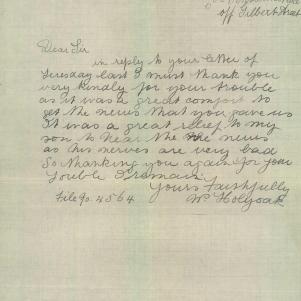 off Gilbert
Dear Sir
in reply to your letter of
Tuesday last I must thank you
very kindly for your trouble
as it was a great comfort to
get the news that you gave us
It was a great relief to my
son to hear the news
as his nerves are very bad
So thanking you again for your
Touble I remain
Yours Faithfully
W Holyoak
File No. 4564